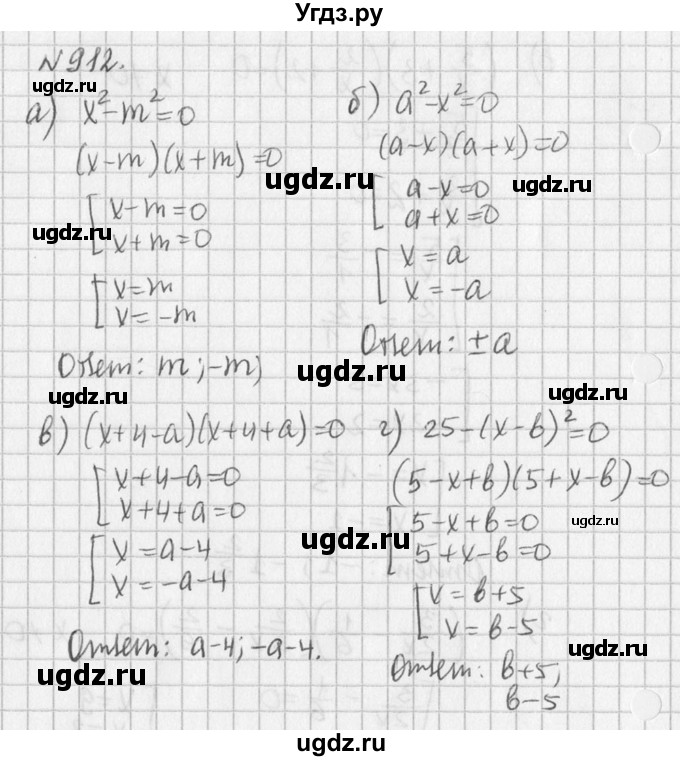 Угдз.ру
№912.
а) x²-m²=0
(x-m)(x+m)=0
x-m=0
x+m=0
x=m
x=-m
Ответ: m;-m;
б) a²-x²=0
(a-x)(a+x)=0
a-x=0
a+x=0
x=a
x=-a
Ответ: ±a
в) (x+4-a)(x+4+a)=0
x+4-a=0
x+4+a=0
x=a-4
x=-a-4
Ответ: a-4;-a-4.
г) 25-(x-b)²=0
(5-x+b)(5+x-b)=0
5-x+b=0
5+x-b=0
x=b+5
x=b-5
Ответ: b+5;
b-5
ugdz.ru
ugdz.ru
ugdz.ru
ugdz.ru
ugdz.ru
ugdz.ru
ugdz.ru
ugdz.ru
ugdz.ru
ugdz.ru
ugdz.ru
ugdz.ru
ugdz.ru
ugdz.ru